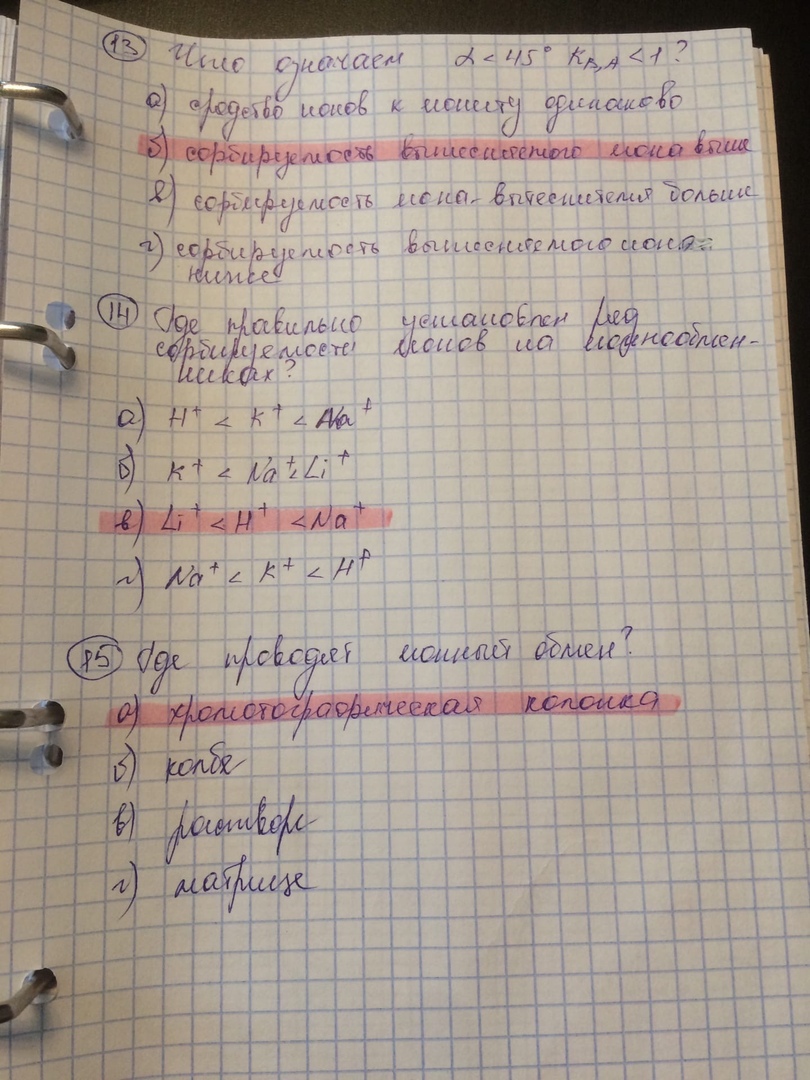 13 Что означает α < 45° K_B,A < 1?
а) сродство ионов к иониту одинаково
б) сорбируемость вытесняемого иона выше
в) сорбируемость иона-вытеснителя больше
г) сорбируемость вытесняемого иона
ниже
14 Где правильно установлен ряд
сорбируемости ионов на ионообмен-
никах?
а) H⁺ < K⁺ < Na⁺
б) K⁺ < Na⁺ < Li⁺
в) Li⁺ < H⁺ < Na⁺
г) Na⁺ < K⁺ < H⁺
15 Где проводят ионный обмен?
а) хромотографическая колонка
б) колбе
в) растворе
г) матрице